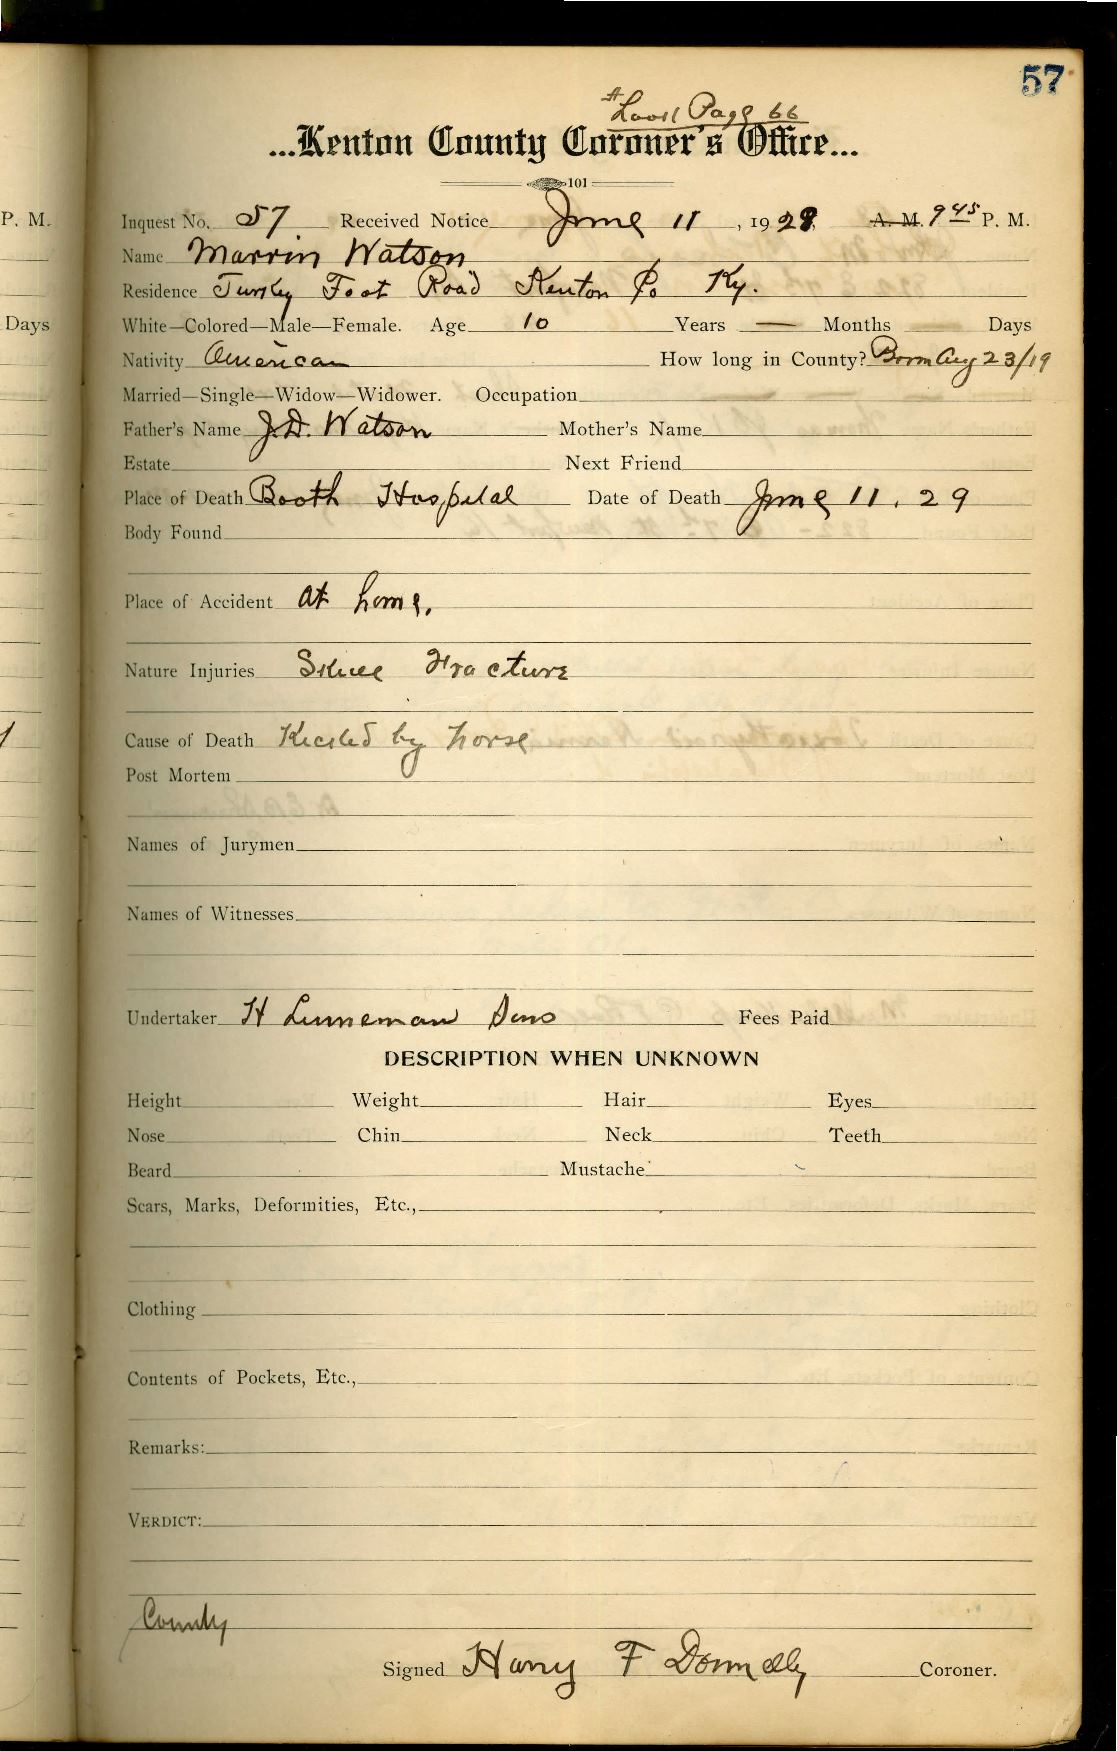 57
Look Page 66
...Kenton County Coroner's Office...
101
P. M.
Inquest No. 57 Received Notice June 11, 1929 A. M. 9 45 P. M.
Name Marvin Watson
Residence Turkey Foot Road Kenton Co Ky.
Days
White—Colored—Male—Female. Age 10 Years — Months — Days
Nativity American How long in County? Born Aug 23/19
Married—Single—Widow—Widower. Occupation
Father's Name J.D. Watson Mother's Name
Estate Next Friend
Place of Death Booth Hospital Date of Death June 11. 29
Body Found
Place of Accident at home.
Nature Injuries Skull Fracture
Cause of Death Kicked by horse
Post Mortem
Names of Jurymen
Names of Witnesses
Undertaker H Linneman Sons Fees Paid
DESCRIPTION WHEN UNKNOWN
Height Weight Hair Eyes
Nose Chin Neck Teeth
Beard Mustache
Scars, Marks, Deformities, Etc.,
Clothing
Contents of Pockets, Etc.,
Remarks:
VERDICT:
County
Signed Harry F Donnelly Coroner.